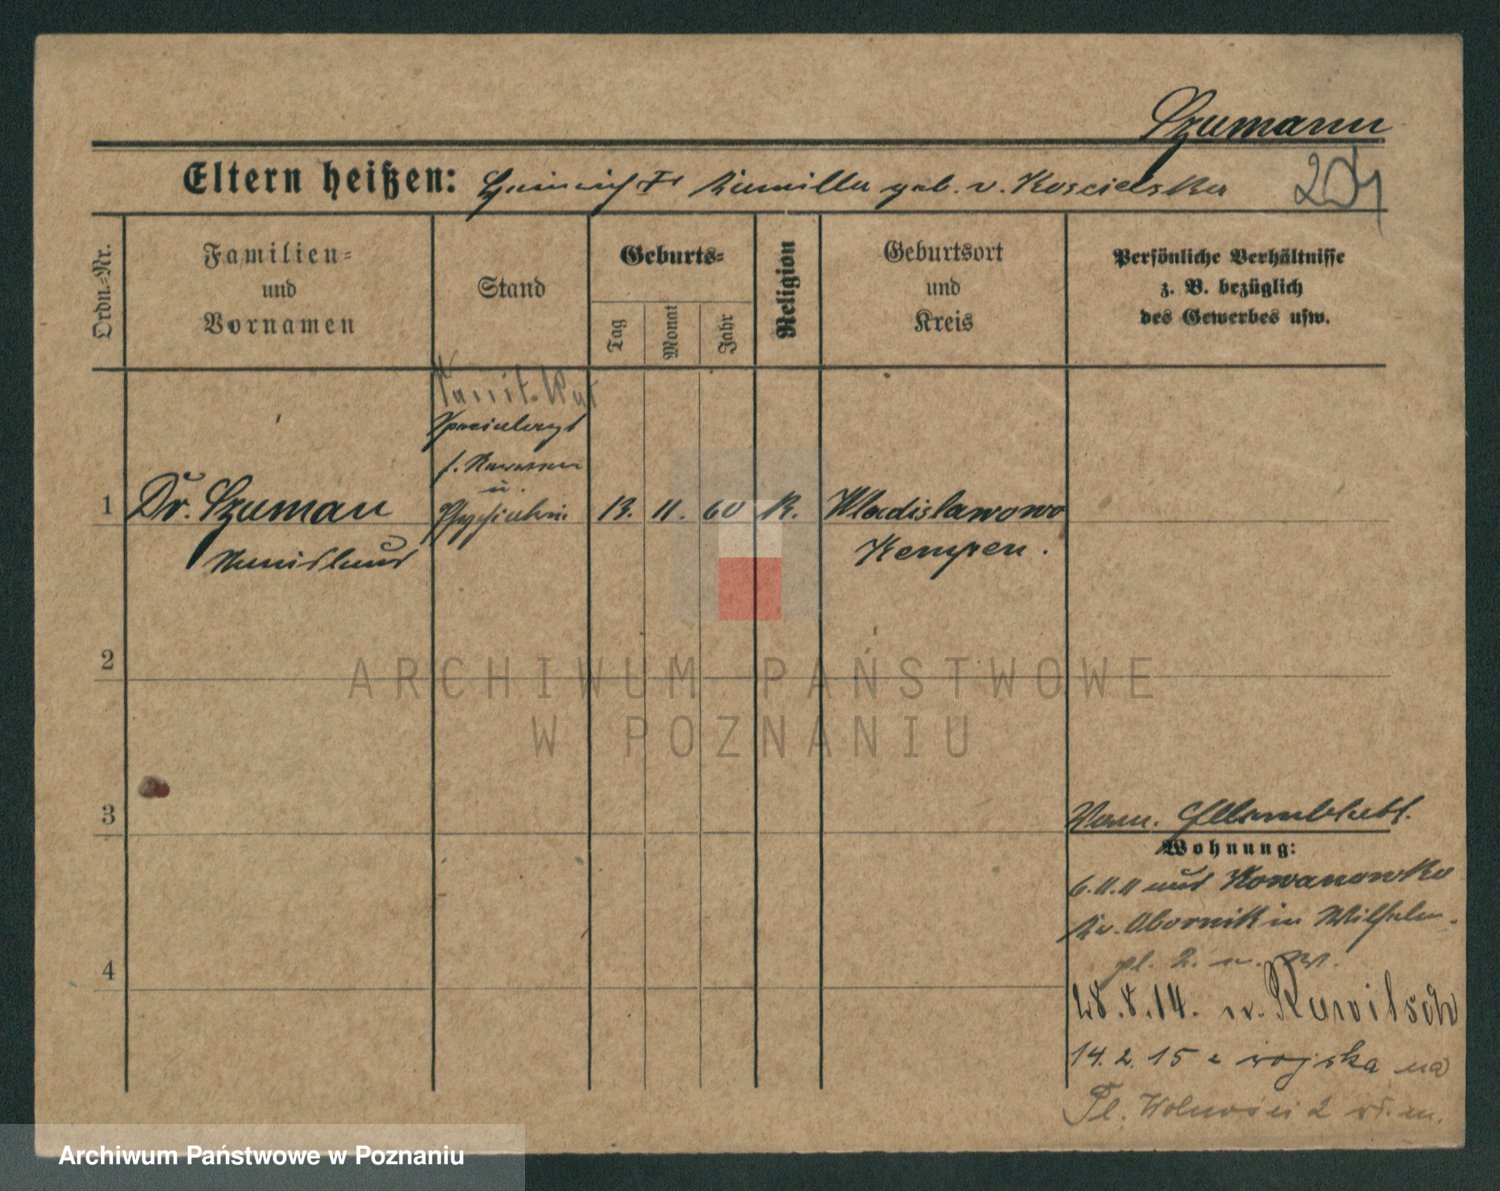 Szumann
Eltern heißen: Heinrich geb. v. Koscielska
Ordn.-Nr.
Familien-
und
Vornamen
Stand
Geburts-
Tag
Monat
Jahr
Religion
Geburtsort
und
Kreis
Persönliche Verhältnisse
z. B. bezüglich
des Gewerbes usw.
Sanit. Rat
Spezialarzt
f. Nerven
u.
1 Dr. Szuman 13. 11. 60 K. Wladislawowo
Stanislaus
Kempen.
2
3
4
Wohnung:
6.11.11 aus Kowanowko
Kr. Obornik in Wilhelm-
pl. 2.
28.8.14. n. Rawitsch
14.2.15 z wojska na
Pl. Wolności 2
ARCHIWUM PAŃSTWOWE
W POZNANIU
Archiwum Państwowe w Poznaniu